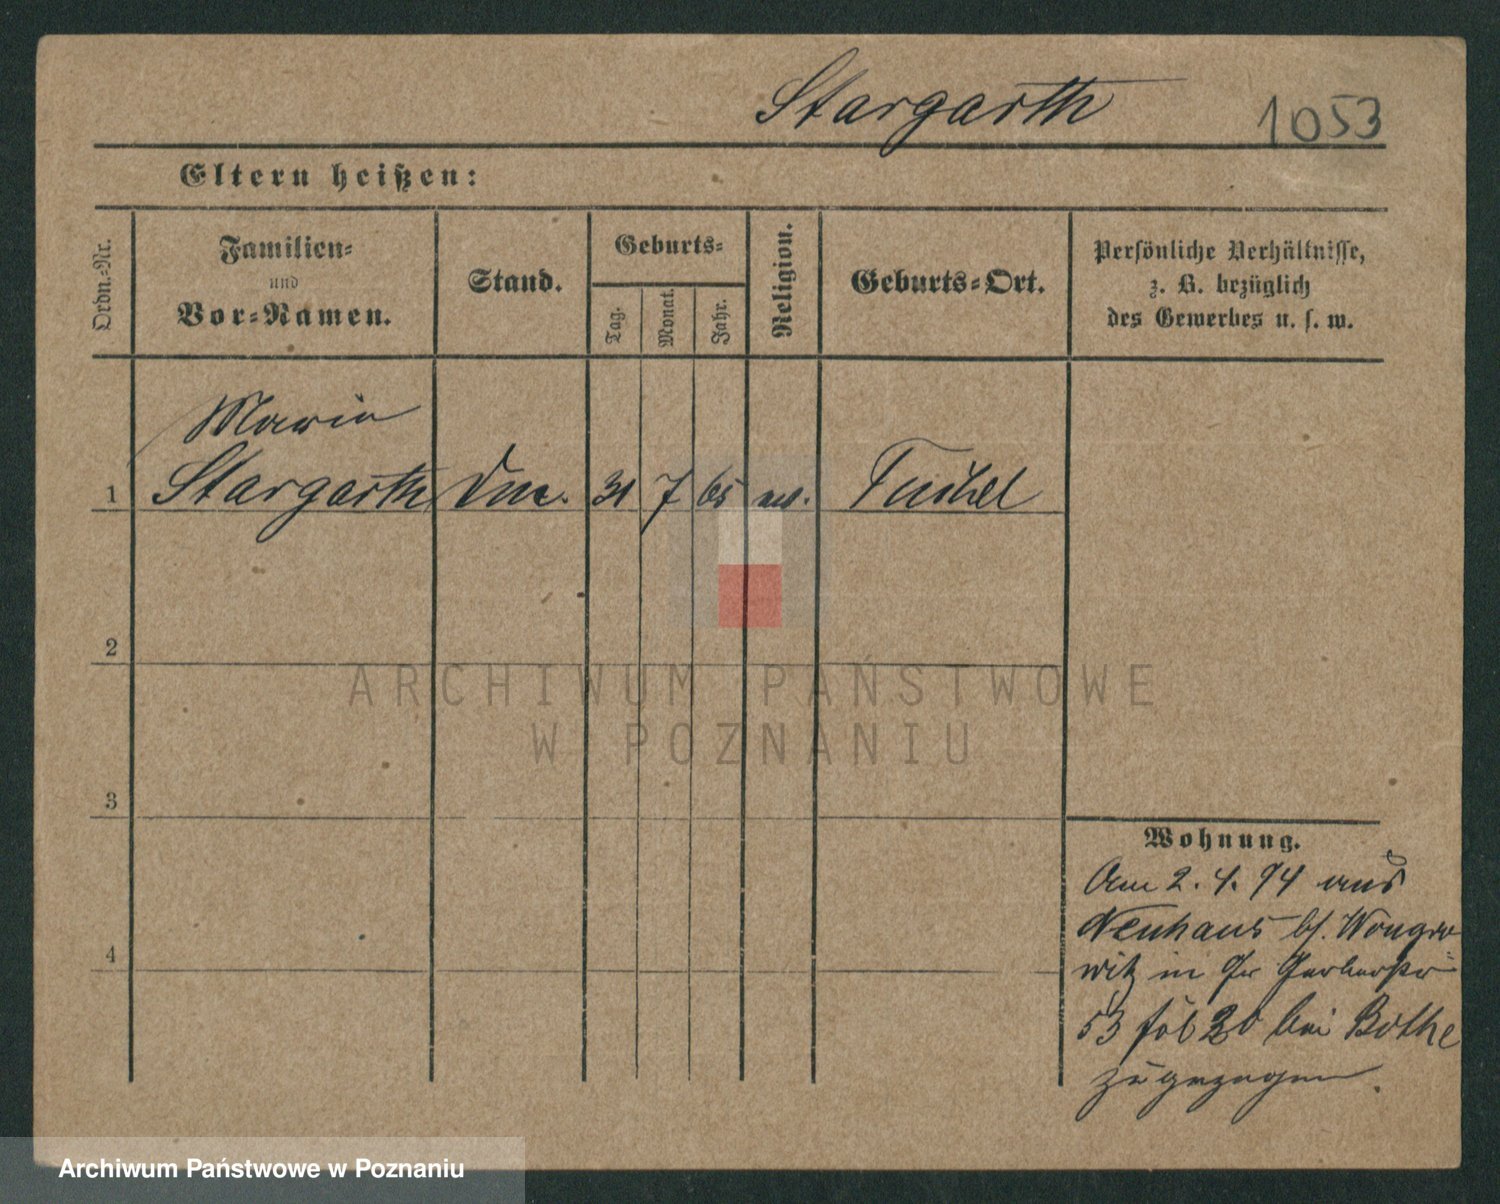 Stargarth 1053
Eltern heißen:
Ordn.-Nr.
Familien-
und
Vor-Namen.
Stand.
Geburts-
Tag.
Monat.
Jahr.
Religion.
Geburts-Ort.
Persönliche Verhältnisse,
z. B. bezüglich
des Gewerbes u. s. w.
Maria
1 Stargarth 31 7 65 Tuchel
2
ARCHIWUM PAŃSTWOWE
W POZNANIU
3
4
Wohnung.
Am 2. 4. 94 aus
Neuhaus b/. Wongro
witz in Gerberstr
53 fol 20 bei Bothe
zugezogen.
Archiwum Państwowe w Poznaniu